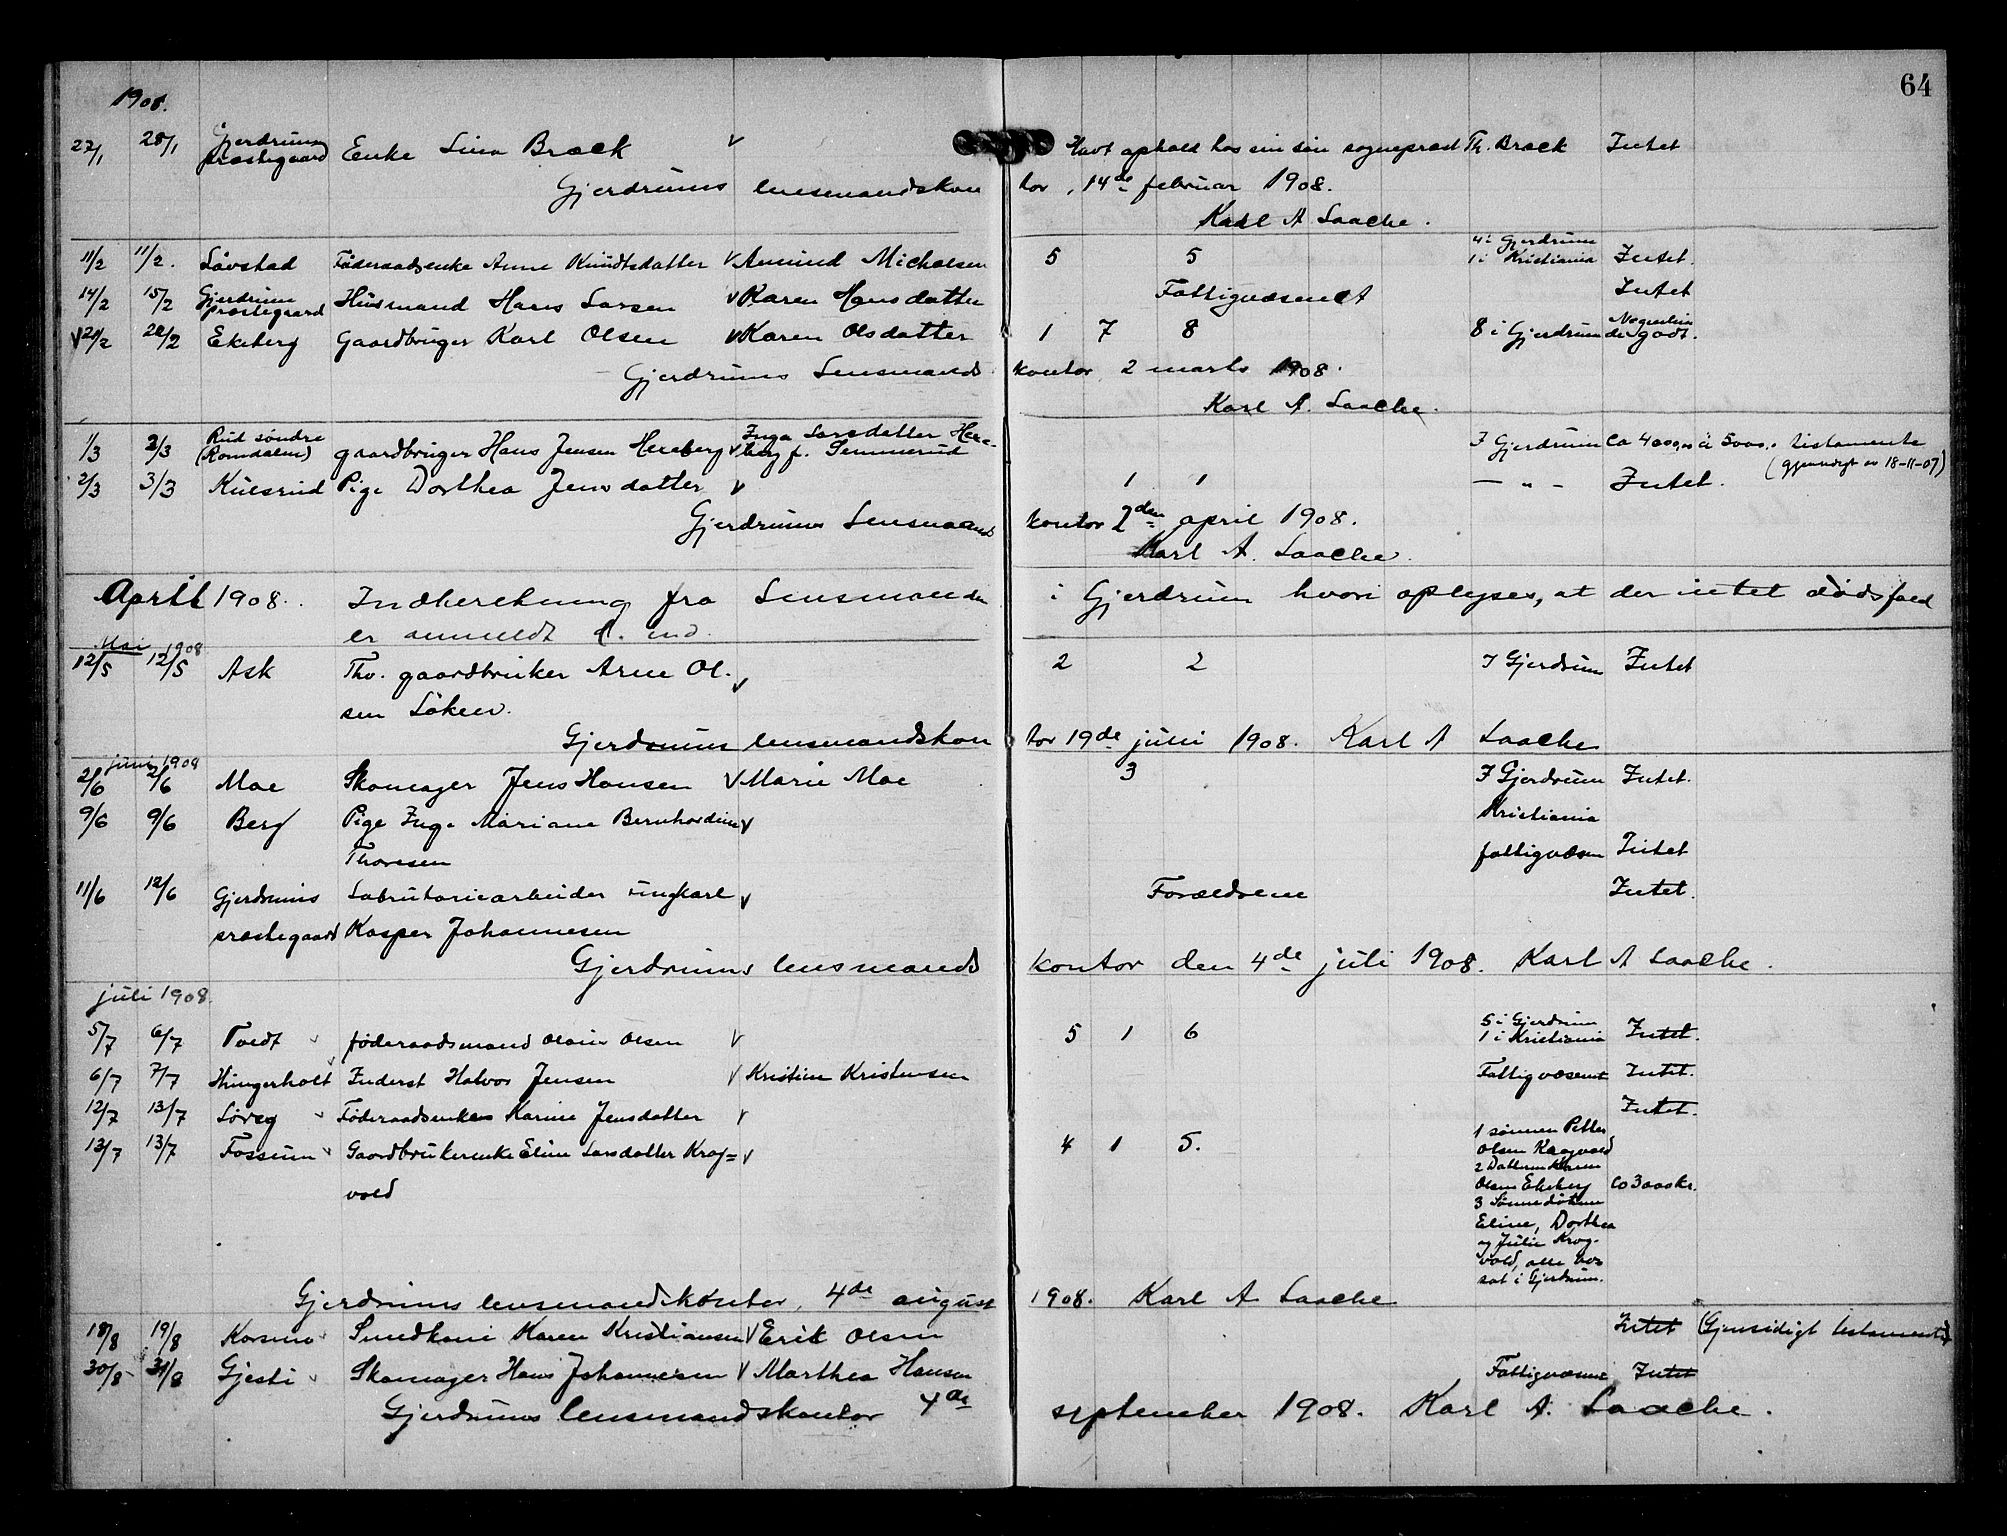 64
1908.
27/1 28/1 Gjerdrum præstegaard Enke Lina Bræck v Havt ophold hos sin søn sogneprest Th. Bræck Intet
Gjerdrums lensmandskontor, 14de februar 1908.
Karl A Laache.
11/2 11/2. Løvstad Føderaadsenke Anne Knudtsdatter v Amund Michelsen 5 5 4 i Gjerdrum 1 i Kristiania Intet.
14/2 15/2 Gjerdrum præstegaard Husmand Hans Larsen v Karen Hansdatter Fattigvæsenet Intet
v 20/2 20/2 Ekeberg Gaardbruger Karl Olsen v Karen Olsdatter 1 7 8 8 i Gjerdrum godt.
Gjerdrums Lensmandskontor, 2 marts 1908.
Karl A. Laache.
1/3 2/3 Rud søndre (Romdalen) gaardbruger Hans Jensen Hexeberg v Inga Larsdatter Hexeberg f. I Gjerdrum Ca 4000,00 à 5000,- testamente
( 18-11-07)
2/3 3/3 Kulsrud Pige Dorthea Jensdatter v 1 1 — „ — Intet.
Gjerdrums Lensmandskontor 2den april 1908.
Karl A. Laache.
April 1908. Indberetning fra Lensmanden i Gjerdrum hvori oplyses, at der intet dødsfald
er anmeldt d. md.
Mai 1908
12/5 12/5 Ask Fhv. gaardbruker Arne Ol- v 2 2 I Gjerdrum Intet
sen Løken.
Gjerdrums lensmandskontor 19de juni 1908. Karl A Laache
juni 1908
2/6 2/6 Moe Skomager Jens Hansen v Marie Moe 3 I Gjerdrum Intet.
9/6 9/6 Berg Pige Inga Mariane Bernhardine v Kristiania
Thoresen fattigvæsen Intet
11/6 12/6 Gjerdrums Labratoriearbeider ungkarl v Forældrene Intet.
præstegaard Kasper Johannesen
Gjerdrums lensmandskontor den 4de juli 1908. Karl A Laache.
juli 1908.
5/7 6/7 Tvedt føderaadsmand Olaus Olsen v 5 1 6 5 i Gjerdrum 1 i Kristiania Intet.
6/7 7/7 Hungerholt Inderst Halvor Jensen v Kristine Kristensen Fattigvæsenet Intet.
12/7 13/7 Føderaadsenken Karine Jensdatter v Intet.
13/7 13/7 Fossum Gaardbrukerenke Eline Larsdatter Krog= v 4 1 5. 1 sønnen Petter
vold Olsen Krogvold
2 Datteren Karen
Olsen Ekeberg Ca 3000 kr.
3 Sønnedøtrene
Eline, Dorthea
og Julie Krog-
vold, alle bo-
sat i Gjerdrum.
Gjerdrums lensmandskontor, 4de august 1908. Karl A Laache
18/8 19/8 Kosmo Smedkone Karen Kristiansen v Erik Olsen Intet (Gjensidigt testamente)
30/8 31/8 Gjesti Skomager Hans Johannesen v Marthea Hansen Fattigvæsenet Intet
Gjerdrums lensmandskontor 4de september 1908. Karl A. Laache.